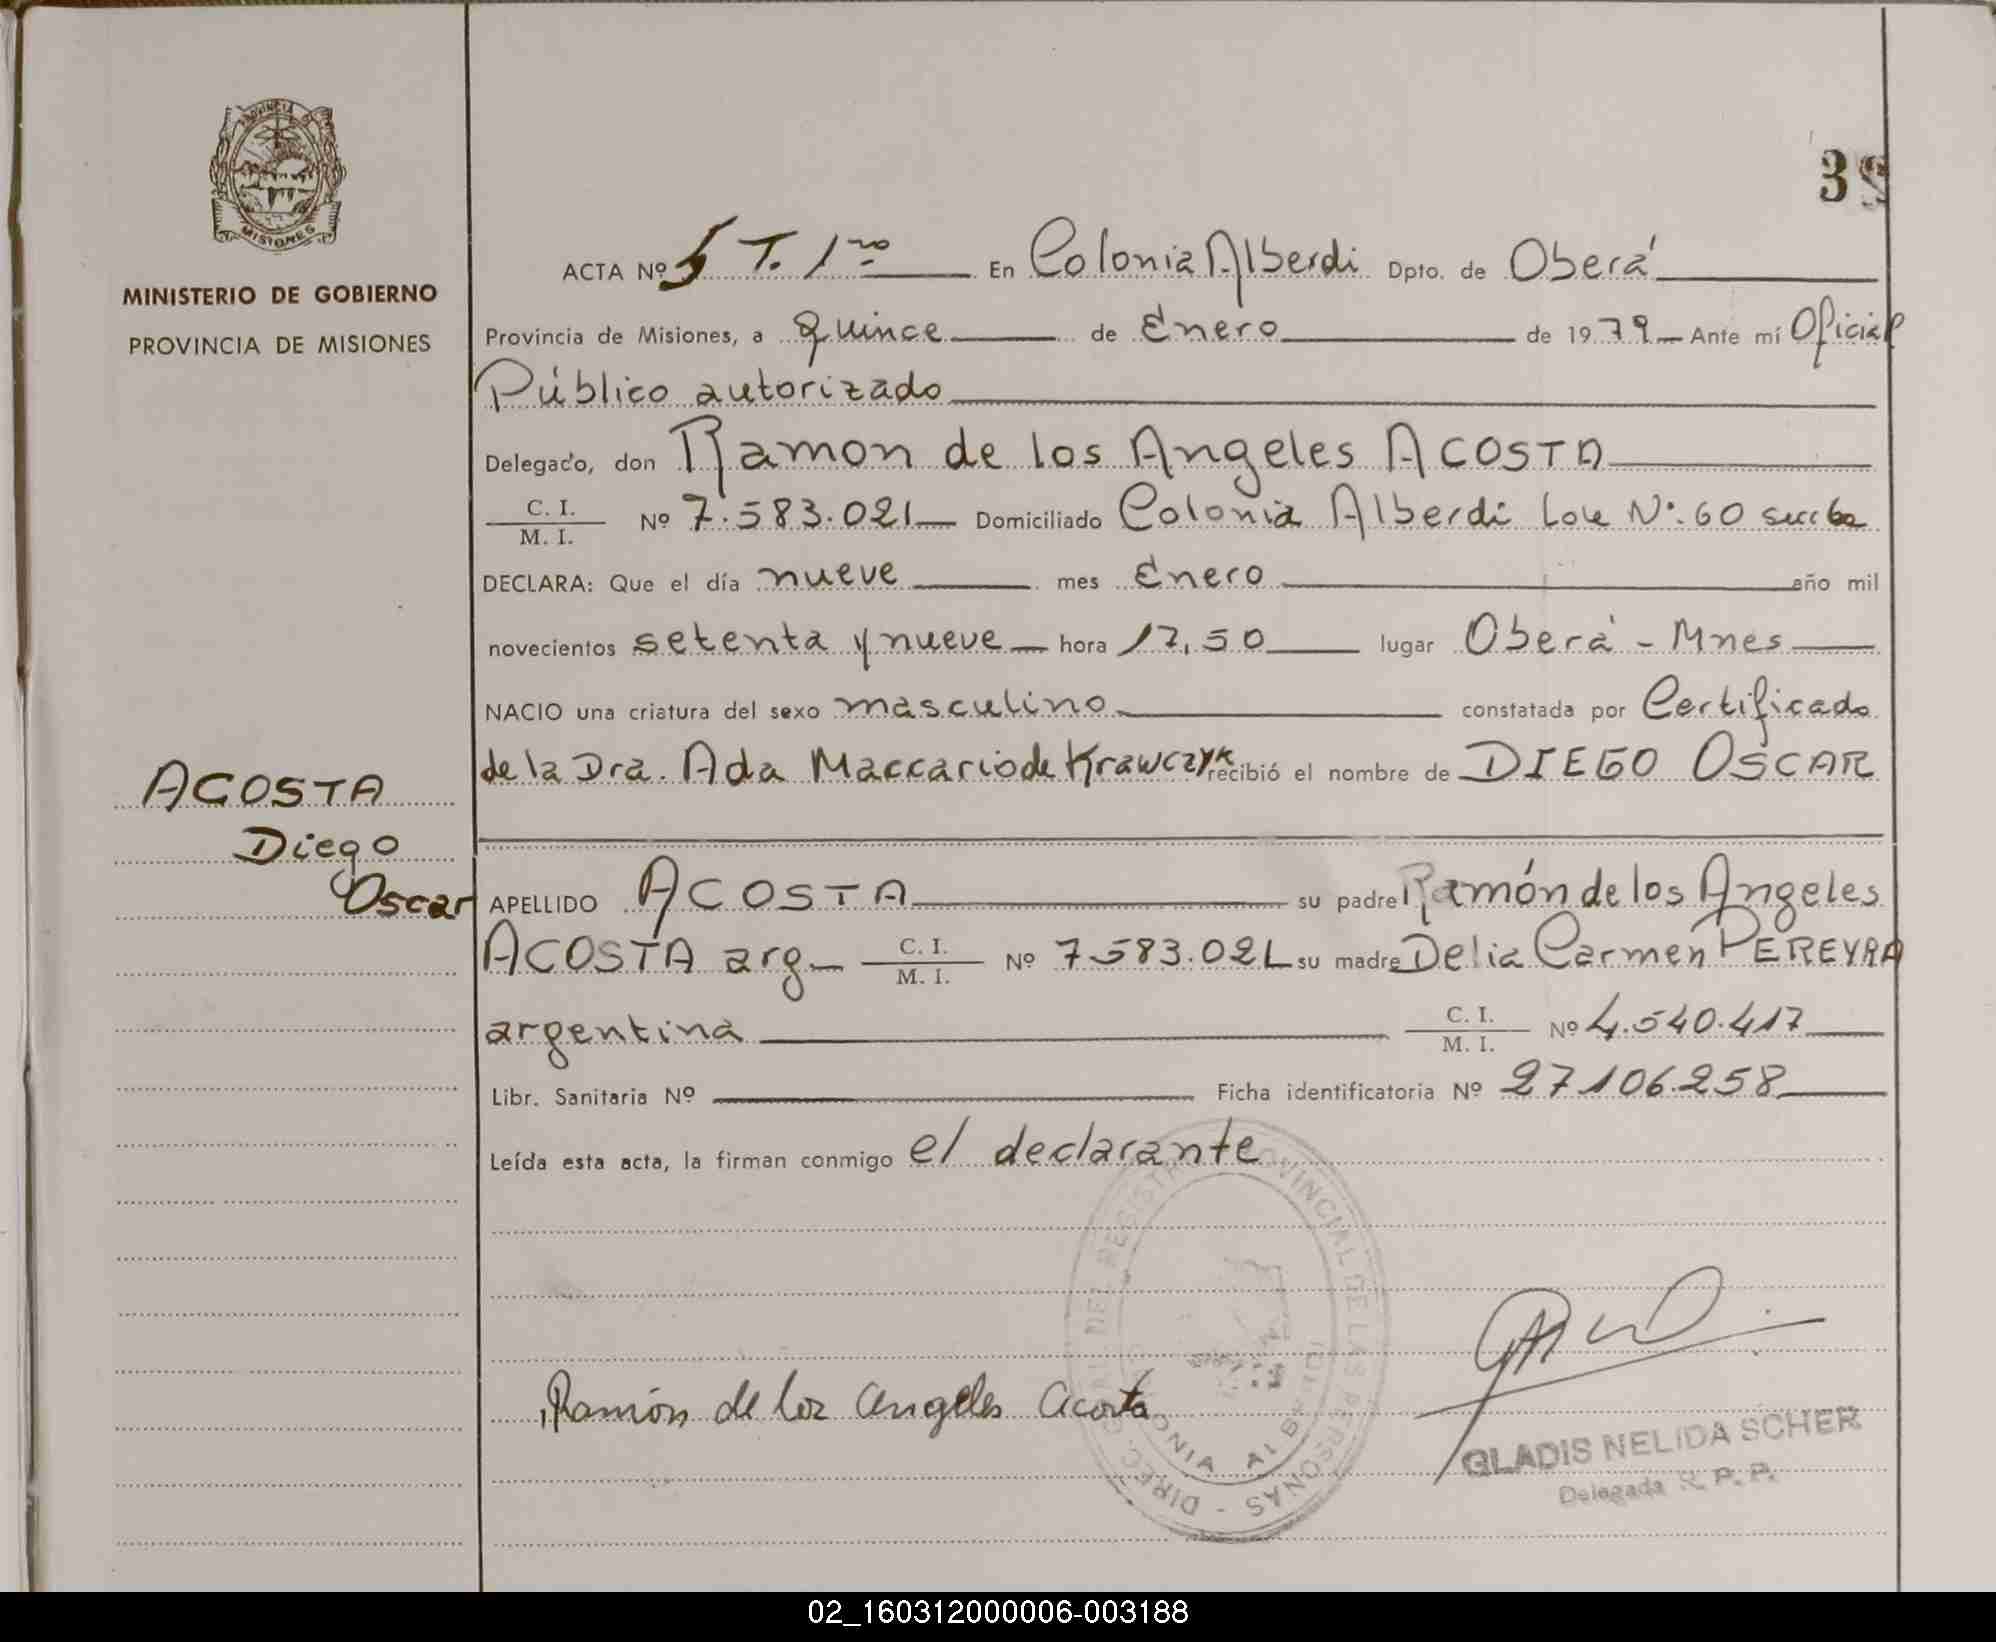 PROVINCIA DE
MISIONES
MINISTERIO DE GOBIERNO
PROVINCIA DE MISIONES
ACOSTA
Diego
Oscar
3
ACTA Nº 5 T. 1ro En Colonia Alberdi Dpto. de Oberá
Provincia de Misiones, a quince de Enero de 1979 Ante mí Oficial
Público autorizado
Delegado, don Ramon de los Angeles ACOSTA
C. I.
M. I. Nº 7.583.021 Domiciliado Colonia Alberdi Lote Nº 60
DECLARA: Que el día nueve mes Enero año mil
novecientos setenta y nueve hora 17,50 lugar Oberá - Mnes
NACIO una criatura del sexo masculino constatada por Certificado
de la Dra. Ada Maccario de Krawczyk recibió el nombre de DIEGO OSCAR
APELLIDO ACOSTA su padre Ramón de los Angeles
ACOSTA arg C. I. M. I. Nº 7.583.021 su madre Delia Carmen PEREYRA
argentina C. I. M. I. Nº 4.540.417
Libr. Sanitaria Nº Ficha identificatoria Nº 27.106.258
Leída esta acta, la firman conmigo el declarante
DIREC. GRAL. DEL REGISTRO PROVINCIAL DE LAS PERSONAS -
COLONIA ALBERDI
Ramón de los Angeles Acosta
GLADIS NELIDA SCHER
Delegada R. P. P.
02_160312000006-003188